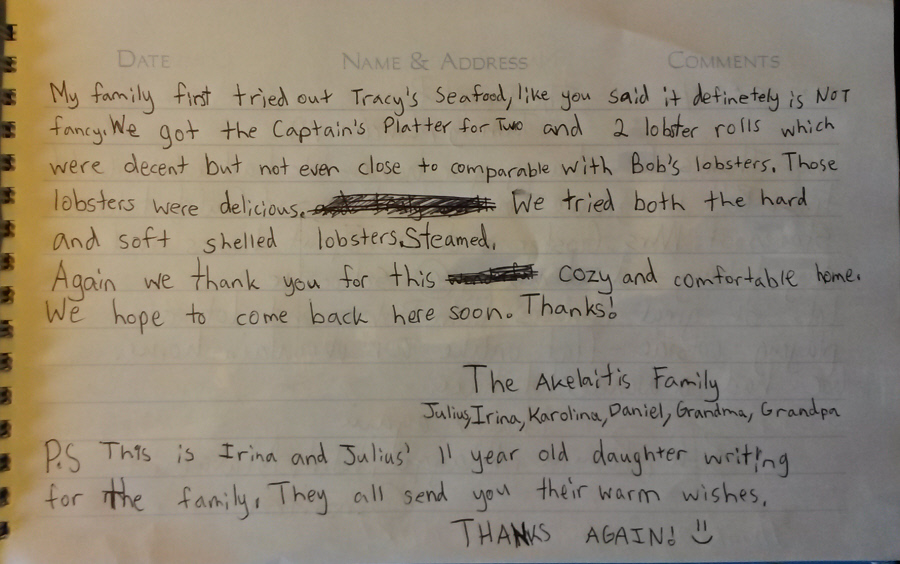 DATE NAME & ADDRESS COMMENTS
My family first tried out Tracy's Seafood, like you said it definetely is NOT
fancy. We got the Captain's Platter for Two and 2 lobster rolls which
were decent but not even close to comparable with Bob's lobsters. Those
lobsters were delicious. We tried both the hard
and soft shelled lobsters. Steamed.
Again we thank you for this cozy and comfortable home.
We hope to come back here soon. Thanks!
The Akelaitis Family
Julius, Irina, Karolina, Daniel, Grandma, Grandpa
P.S This is Irina and Julius' 11 year old daughter writing
for the family. They all send you their warm wishes.
THANKS AGAIN! :)